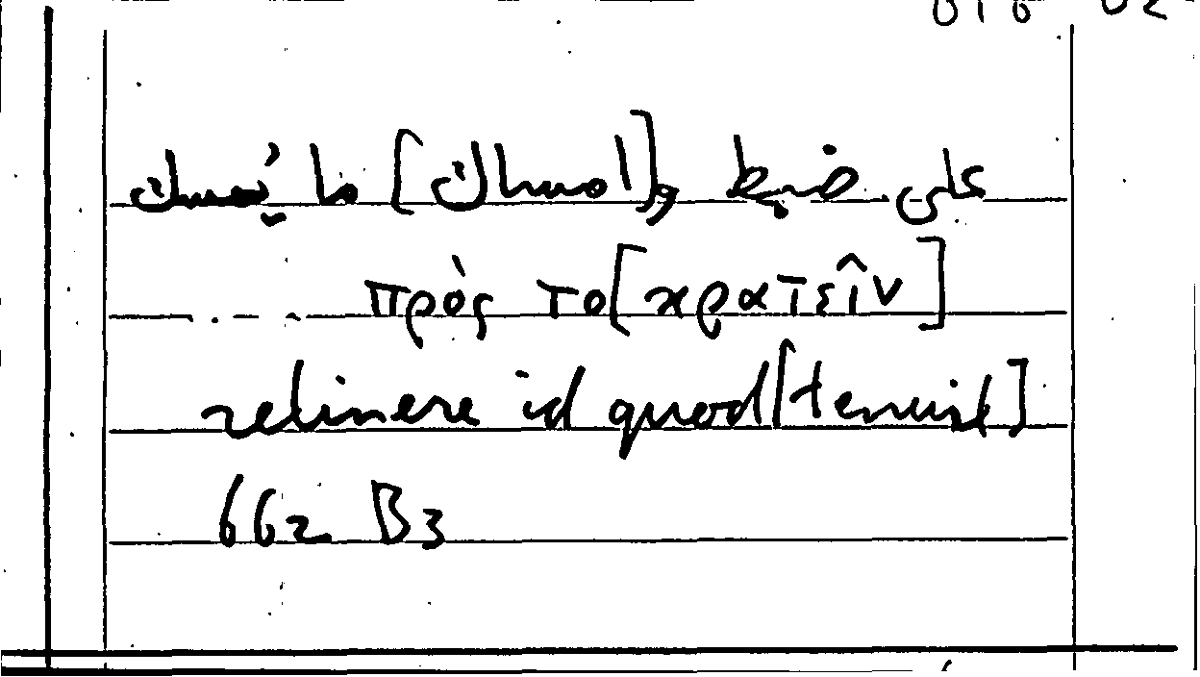 على ضبط و[امساك] ما يُمسك
πρὸς το[κρατεῖν]
retinere id quod [tenuit]
662 B3